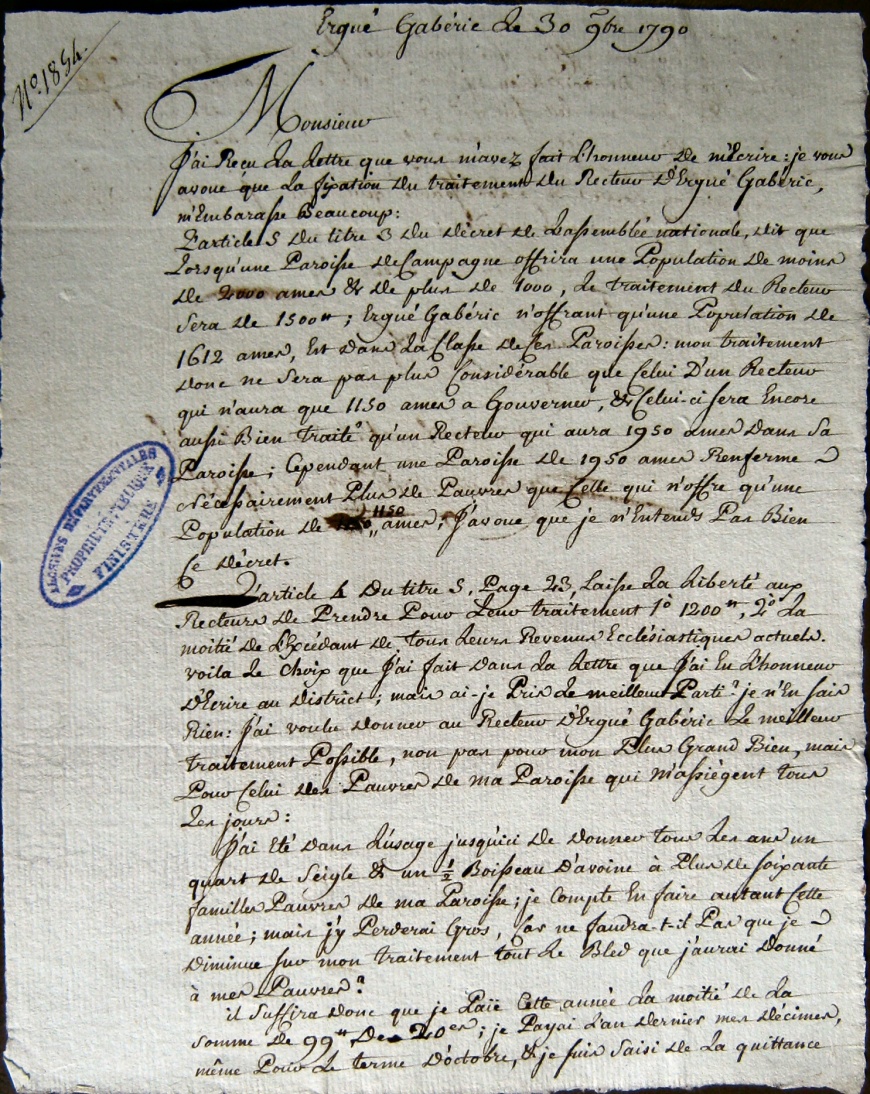 Ergué Gabéric Le 30 9bre 1790
No. 1854.
Monsieur
J'ai Reçu La Lettre que vous m'avez fait L'honneur De m'Ecrire : je vous
avoue que La fixation Du traitement Du Recteur D'Ergué Gabéric,
m'Embarasse Beaucoup :
L'article 5 Du titre 3 Du Décret De L'assemblée nationale, Dit que
Lorsqu'une Paroisse De Campagne offrira une Population De moins
De 2000 ames & De plus De 1000, Le traitement Du Recteur
Sera De 1500tt ; Ergué Gabéric n'offrant qu'une Population De
1612 ames, Est Dans La Classe De Ces Paroisses : mon traitement
Donc ne Sera pas plus Considérable que Celui D'un Recteur
qui n'aura que 1150 ames a Gouverner, & Celui-ci sera Encore
aussi Bien traité qu'un Recteur qui aura 1950 ames Dans Sa
Paroisse ; Cependant une Paroisse De 1950 ames Renferme
Nécessairement Plus De Pauvres que Celle qui n'offre qu'une
Population De 1150 ames ; J'avoue que je n'Entends Pas Bien
Ce Décret.
L'article 4 Du titre 3, Page 23, Laisse La Liberté aux
Recteurs De Prendre Pour Leur traitement 1º 1200tt, 2º La
moitié De L'Excédant De tous Leurs Revenus Ecclésiastiques actuels.
voila Le Choix que J'ai fait Dans La Lettre que J'ai Eu L'honneur
D'Ecrire au District ; mais ai-je Pris Le meilleur Parti ? je n'En sais
Rien : J'ai voulu Donner au Recteur D'Ergué Gabéric Le meilleur
traitement Possible, non pas pour mon Plus Grand Bien, mais
Pour Celui Des Pauvres De ma Paroisse qui m'assiègent tous
Les jours :
J'ai Eté Dans L'usage jusqu'ici De Donner tous Les ans un
quart De Seigle & un 1/2 Boisseau D'avoine à Plus De soixante
familles Pauvres De ma Paroisse ; je Compte En faire autant Cette
année ; mais j'y Perderai Gros, Car ne faudra-t-il Pas que je
Diminue sur mon traitement tout Le Bled que j'aurai Donné
à mes Pauvres ?
il Suffira Donc que je Païe Cette année La moitié De La
Somme De 99tt De ; je Payai L'an Dernier mes Décimes,
même Pour Le terme D'octobre, & je suis Saisi De La quittance
ARCHIVES DÉPARTEMENTALES
PROPRIÉTÉ PUBLIQUE
FINISTÈRE